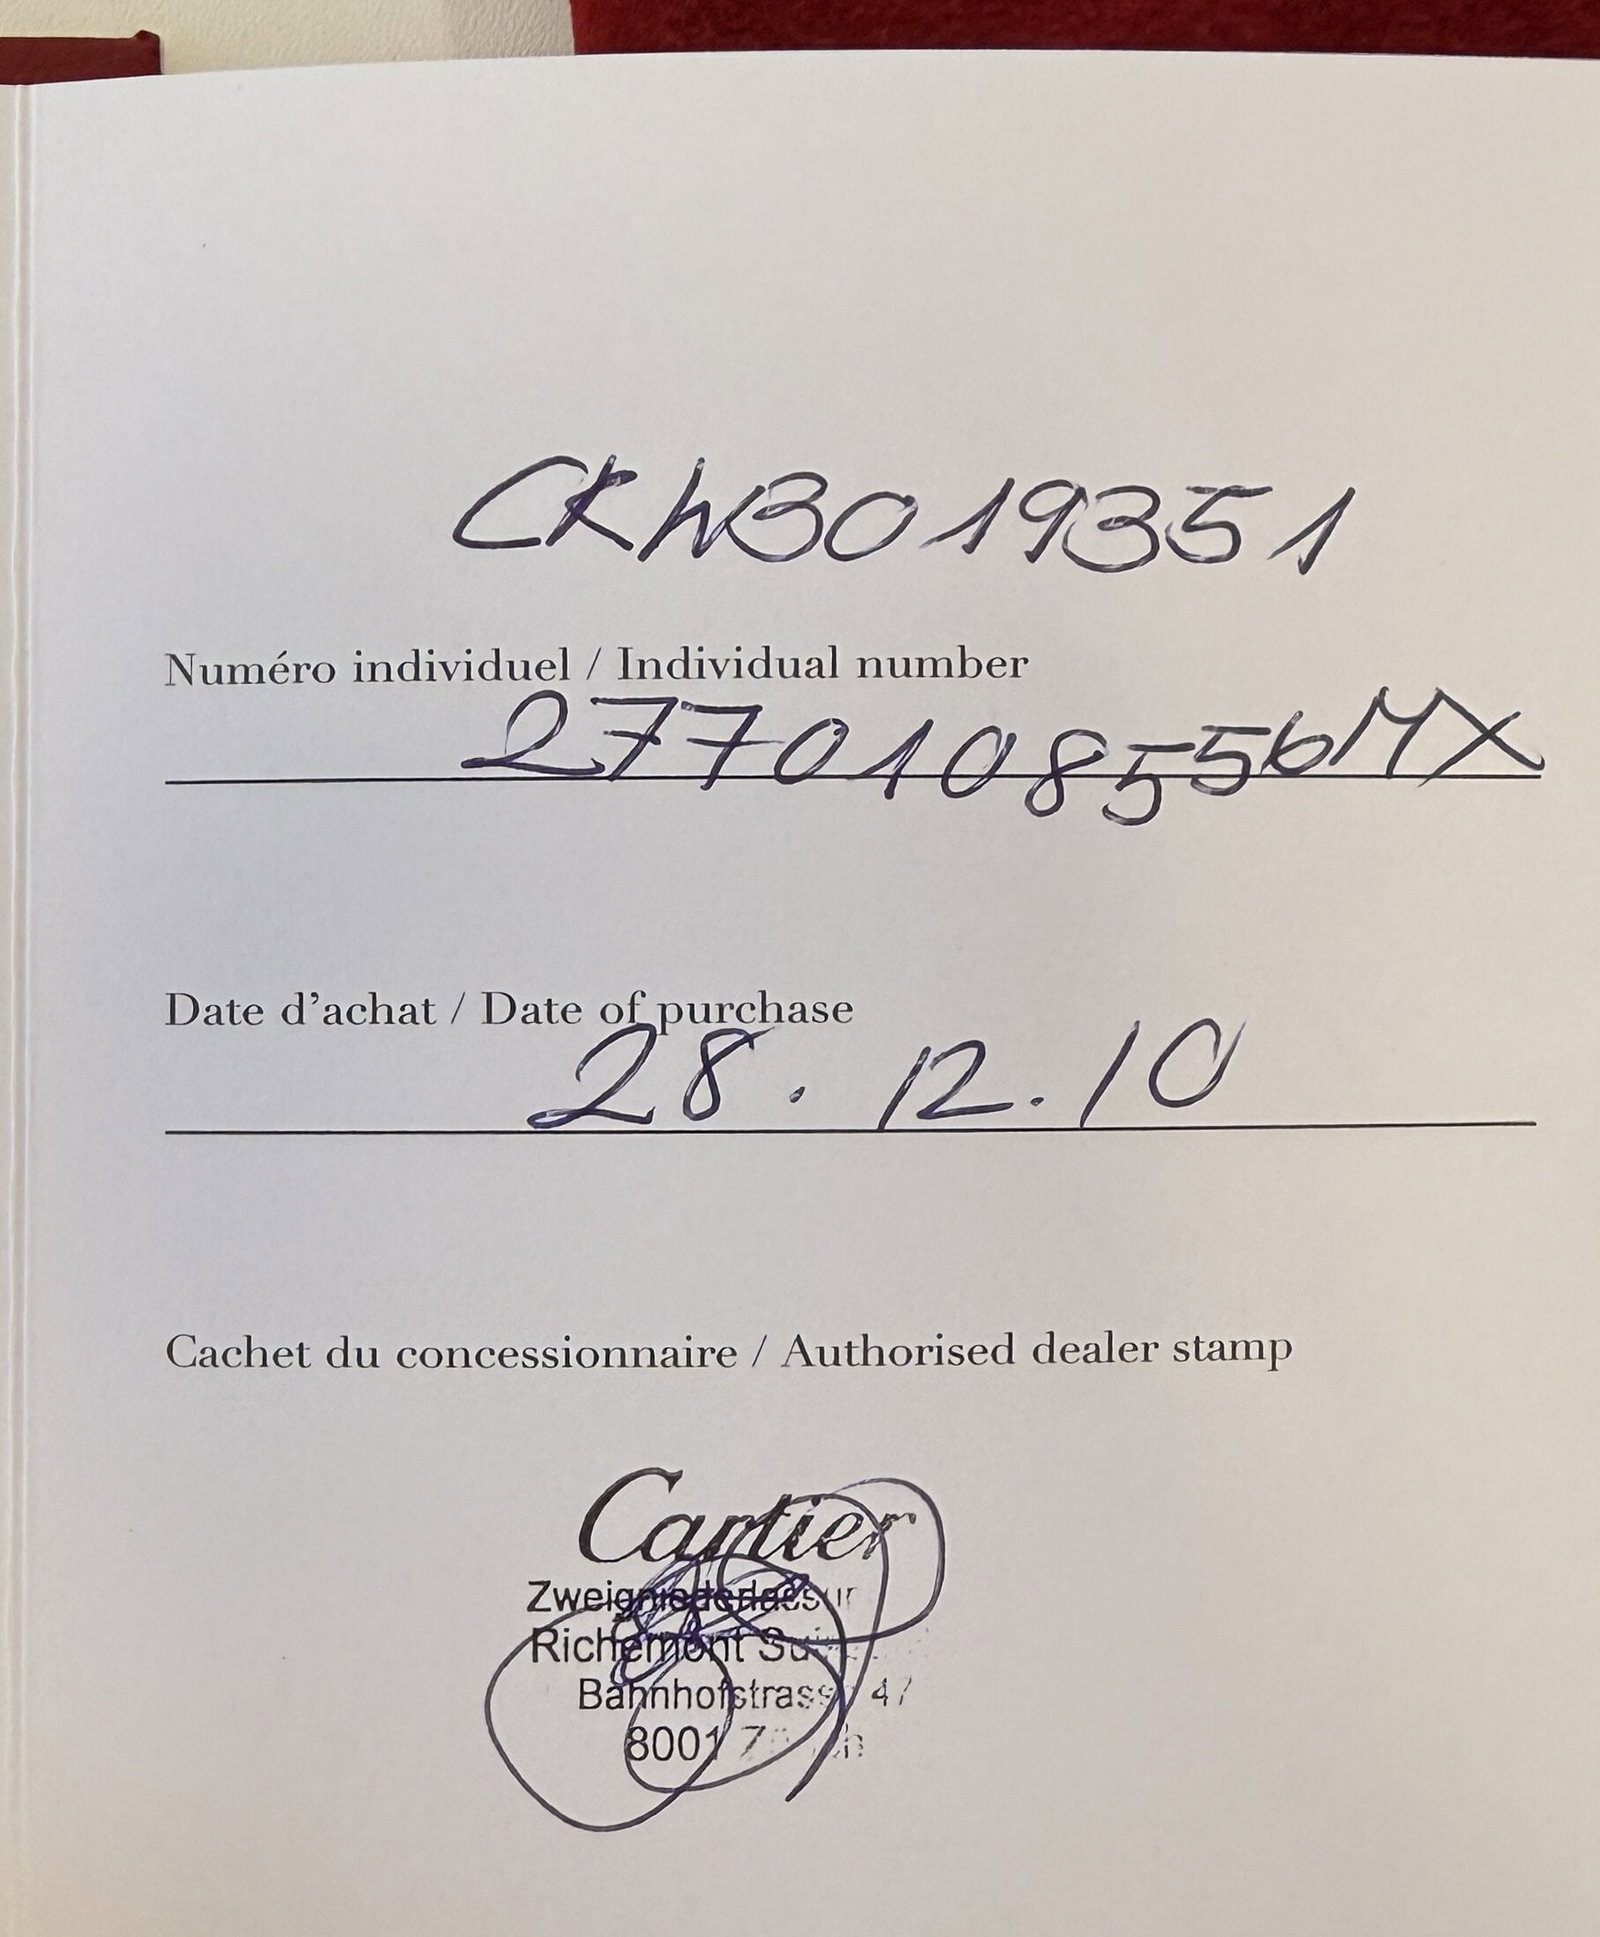 CRWB019351
Numéro individuel / Individual number
2770108556MX
Date d'achat / Date of purchase
28. 12. 10
Cachet du concessionnaire / Authorised dealer stamp
Cartier
Richemont
Bahnhofstrasse 47
8001